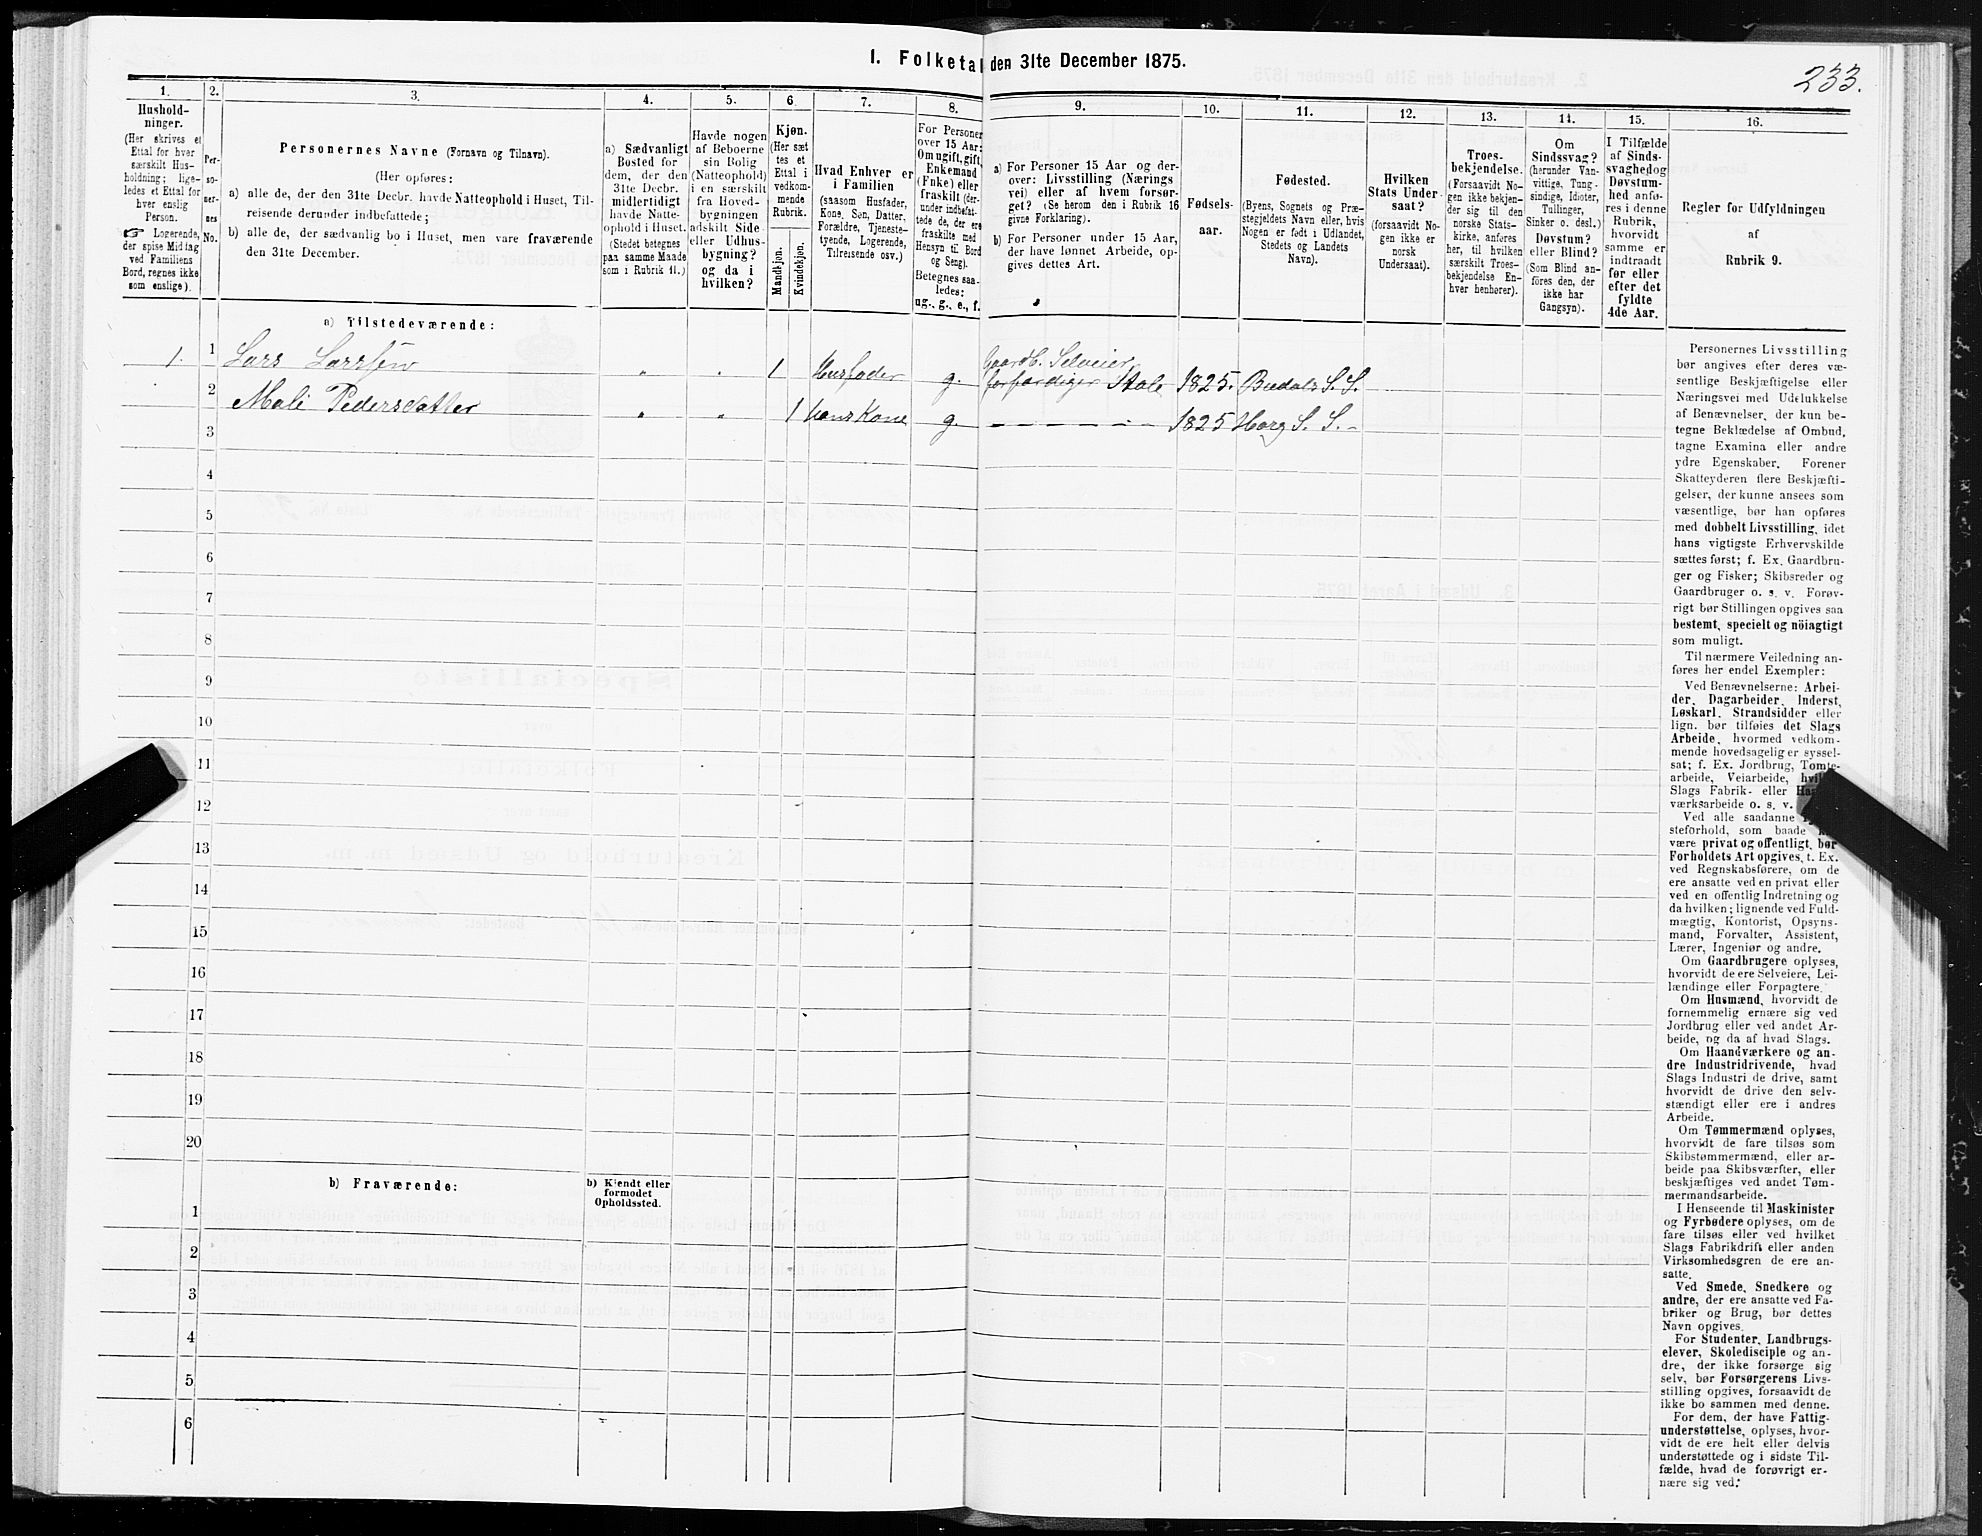 1. Folketal den 31te December 1875.
233.
1.
Hushold-
ninger.
(Her skrives et
Ettal for hver
særskilt Hus-
holdning; lige-
ledes et Ettal for
hver enslig
Person.
☞ Logerende,
der spise Middag
ved Familiens
Bord, regnes ikke
som enslige).
2.
Per-
so-
ner-
nes
No.
3.
Personernes Navne (Fornavn og Tilnavn).
(Her opføres:
a) alle de, der den 31te Decbr. havde Natteophold i Huset, Til-
reisende derunder indbefattede;
b) alle de, der sædvanlig bo i Huset, men vare fraværende
den 31te December.
4.
a) Sædvanligt
Bosted for
dem, der den
31te Decbr.
midlertidigt
havde Natte-
ophold i Huset.
(Stedet betegnes
paa samme Maade
som i Rubrik 11.)
5.
Havde nogen
af Beboerne
sin Bolig
(Natteophold)
i en særskilt
fra Hoved-
bygningen
adskilt Side-
eller Udhus-
bygning?
og da i
hvilken?
6.
Kjøn.
(Her sæt
tes et
Ettal i
vedkom-
mende
Rubrik.
Mandkjøn.
Kvindekjøn.
7.
Hvad Enhver er
i Familien
(saasom Husfader,
Kone, Søn, Datter,
Forældre, Tjeneste-
tyende, Logerende,
Tilreisende osv.)
8.
For Personer
over 15 Aar:
Om ugift, gift,
Enkemand
(Enke) eller
fraskilt (der-
under indbefat-
tede de, der ere
fraskilte med
Hensyn til Bord
og Seng).
Betegnes saa-
ledes:
ug., g., e., f.
9.
a) For Personer 15 Aar og der-
over: Livsstilling (Nærings
vei) eller af hvem forsør-
get? (Se herom den i Rubrik 16
givne Forklaring).
b) For Personer under 15 Aar,
der have lønnet Arbeide, op-
gives dettes Art.
10.
Fødsels-
aar.
11.
Fødested.
(Byens, Sognets og Præ-
stegjeldets Navn eller, hvis
Nogen er født i Udlandet,
Stedets og Landets
Navn).
12.
Hvilken
Stats Under-
saat?
(forsaavidt No-
gen ikke er
norsk
Undersaat).
13.
Troes-
bekjendelse.
(Forsaavidt No-
gen ikke bekjen-
der sig til den
norske Stats-
kirke, anføres
her, til hvilken
særskilt Troes-
bekjendelse En-
hver henhører).
11.
Om
Sindssvag?
(herunder Van-
vittige, Tung-
sindige, Idioter,
Tullinger,
Sinker o. desl.)
Døvstum?
eller Blind?
(Som Blind an-
føres den, der
ikke har
Gangsyn).
15.
I Tilfælde
af Sinds-
svaghed og
Døvstum-
hed anfø-
res i denne
Rubrik,
hvorvidt
samme er
indtraadt
før eller
efter det
fyldte
4de Aar.
16.
Regler for Udfyldningen
af
Rubrik 9.
a) Tilstedeværende:
1 1 Lars Larssen " " 1 Husfader g. Gaardb. Selveier
forfærdiger Stole 1825. Budals S. S.
2 Mali Pedersdatter " " 1 hans Kone g. — — — — — 1825 Horg S. S. –
3
4
5
6
7
8
9
10
11
12
13
14
15
16
17
18
19
20
b) Fraværende:
b) Kjendt eller
formodet
Opholdssted.
1
2
3
4
5
6
Personernes Livsstilling
bør angives efter deres væ-
sentlige Beskjæftigelse eller
Næringsvei med Udelukkelse
af Benævnelser, der kun be-
tegne Beklædelse af Ombud,
tagne Examina eller andre
ydre Egenskaber. Forener
Skatteyderen flere Beskjæfti-
gelser, der kunne ansees som
væsentlige, bør han opføres
med dobbelt Livsstilling, idet
hans vigtigste Erhvervskilde
sættes først; f. Ex. Gaardbru-
ger og Fisker; Skibsreder og
Gaardbruger o. s. v. Forøv-
rigt bør Stillingen opgives saa
bestemt, specielt og nöiagtigt
som muligt.
Til nærmere Veiledning an-
føres her endel Exempler:
Ved Benævnelserne: Arbei-
der, Dagarbeider, Inderst,
Løskarl, Strandsidder eller
lign. bør tilføies det Slags
Arbeide, hvormed vedkom-
mende hovedsagelig er syssel-
sat; f. Ex. Jordbrug, Tomte-
arbeide, Veiarbeide,
Slags Fabrik- eller
værksarbeide o. s. v.
Ved alle saadanne
steforhold, som baade
være privat og offentligt, bør
Forholdets Art opgives, t. Ex.
ved Regnskabsførere, om de
ere ansatte ved en privat eller
ved en offentlig Indretning og
da hvilken; lignende ved Fuld-
mægtig, Kontorist, Opsyns-
mand, Forvalter, Assistent,
Lærer, Ingeniør og andre.
Om Gaardbrugere oplyses,
hvorvidt de ere Selveiere, Lei-
lændinge eller Forpagtere.
Om Husmænd, hvorvidt de
fornemmelig ernære sig ved
Jordbrug eller ved andet Ar-
beide, og da af hvad Slags.
Om Haandværkere og an-
dre Industridrivende, hvad
Slags Industri de drive, samt
hvorvidt de drive den selv-
stændigt eller ere i andres
Arbeide.
Om Tømmermænd oplyses,
hvorvidt de fare tilsøs som
Skibstømmermænd, eller ar-
beide paa Skibsværfter, eller
beskjæftiges ved andet Tøm-
mermandsarbeide.
I Henseende til Maskinister
og Fyrbødere oplyses, om de
fare tilsøs eller ved hvilket
Slags Fabrikdrift eller anden
Virksomhedsgren de ere an-
satte.
Ved Smede, Snedkere og
andre, der ere ansatte ved Fa-
briker og Brug, bør dettes
Navn opgives.
For Studenter, Landbrugs-
elever, Skoledisciple og an-
dre, der ikke forsørge sig
selv, bør Forsørgerens Livs-
stilling opgives, forsaavidt de
ikke bo sammen med denne.
For dem, der have Fattig-
understøttelse, oplyses, hvor-
vidt de ere helt eller delvis
understøttede og i sidste Til-
fælde, hvad de forøvrigt er-
nære sig ved.